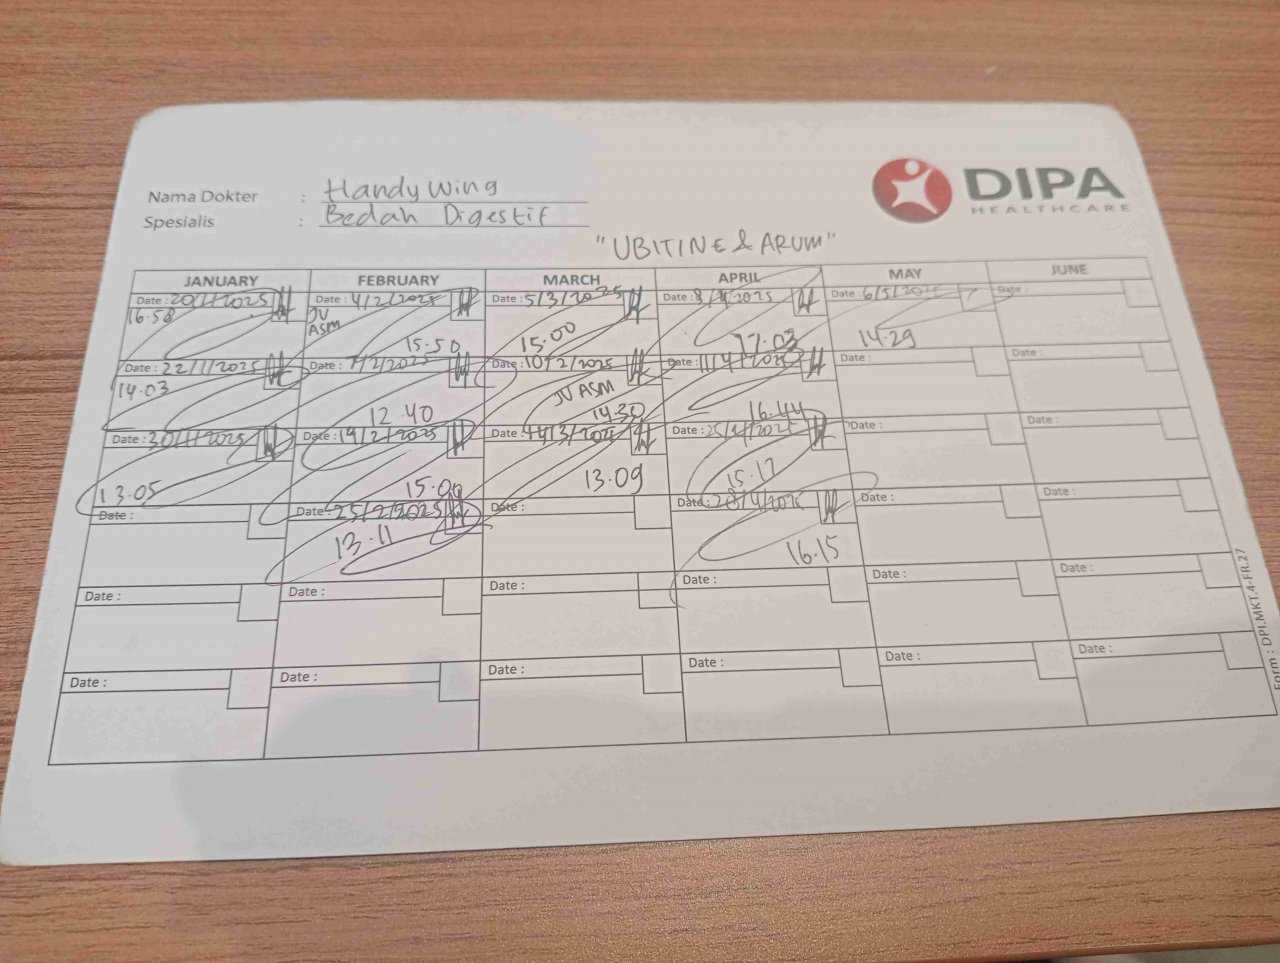 DIPA
HEALTHCARE
Nama Dokter : Handy Wing
Spesialis : Bedah Digestif
"UBITINE & ARUM"
JANUARY FEBRUARY MARCH APRIL MAY JUNE
Date : 20/1/2025 Date : 4/2/2025 Date : 5/3/2025 Date : 8/4/2025 Date : 6/5/2025 Date :
16.58 JV ASM 15.50 15.00 17.03 14.29
Date : 22/1/2025 Date : 7/2/2025 Date : 10/2/2025 Date : 11/4/2025 Date : Date :
14.03 12.40 JV ASM 14.30 16.44
Date : 30/1/2025 Date : 19/2/2025 Date : Date : 25/4/2025 Date : Date :
13.05 15.09 13.09 15.17
Date : Date : 25/2/2025 Date : Date : 28/4/2025 Date : Date :
13.11 16.15
Date : Date : Date : Date : Date : Date :
Date : Date : Date : Date : Date : Date :
Form : DPI.MKT.4-FR.27